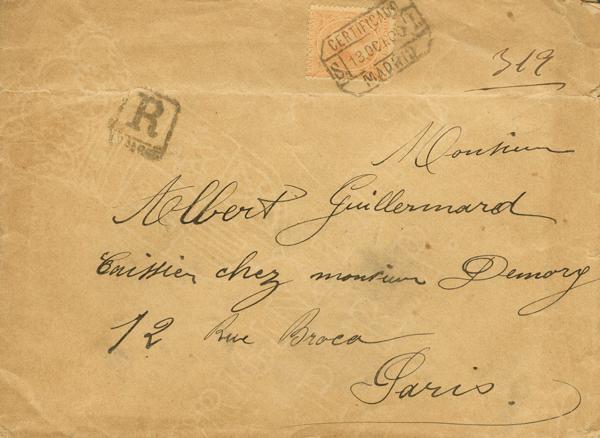 CERTIFICADO
13 OC
MADRID
319
R
Monsieur
Albert Guillermard
Caissier chez monsieur Demory
12 Rue Broca
Paris.